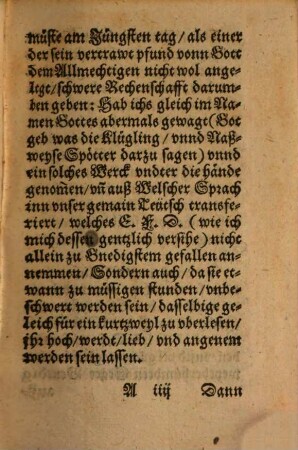 müste am Jüngsten tag / als einer
der sein vertrawt pfund vonn Gott
dem Allmechtigen nicht wol ange-
legt / schwere Rechenschafft darum-
ben geben: Hab ichs gleich im Na-
men Gottes abermals gewagt (Got
geb was die Klügling / vnnd Naß-
weyse Spötter darzu sagen) vnnd
ein solches Werck vndter die hände
genom̃en / vñ auß Welscher Sprach
inn vnser gemain Teütsch transfe-
riert / welches E. F. D. (wie ich
mich dessen gentzlich versihe) nicht
allein zu Gnedigstem gefallen an-
nemmen / Sondern auch / da sie et-
wann zu müssigen stunden / vnbe-
schwert werden sein / dasselbige ge-
leich für ein kurtzweyl zu vberlesen /
jhr hoch / werdt / lieb / vnd angenem
werden sein lassen.
A iiij Dann